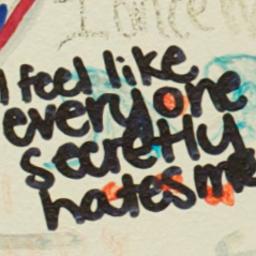 I once w
I feel like
everyone
secretly
hates me